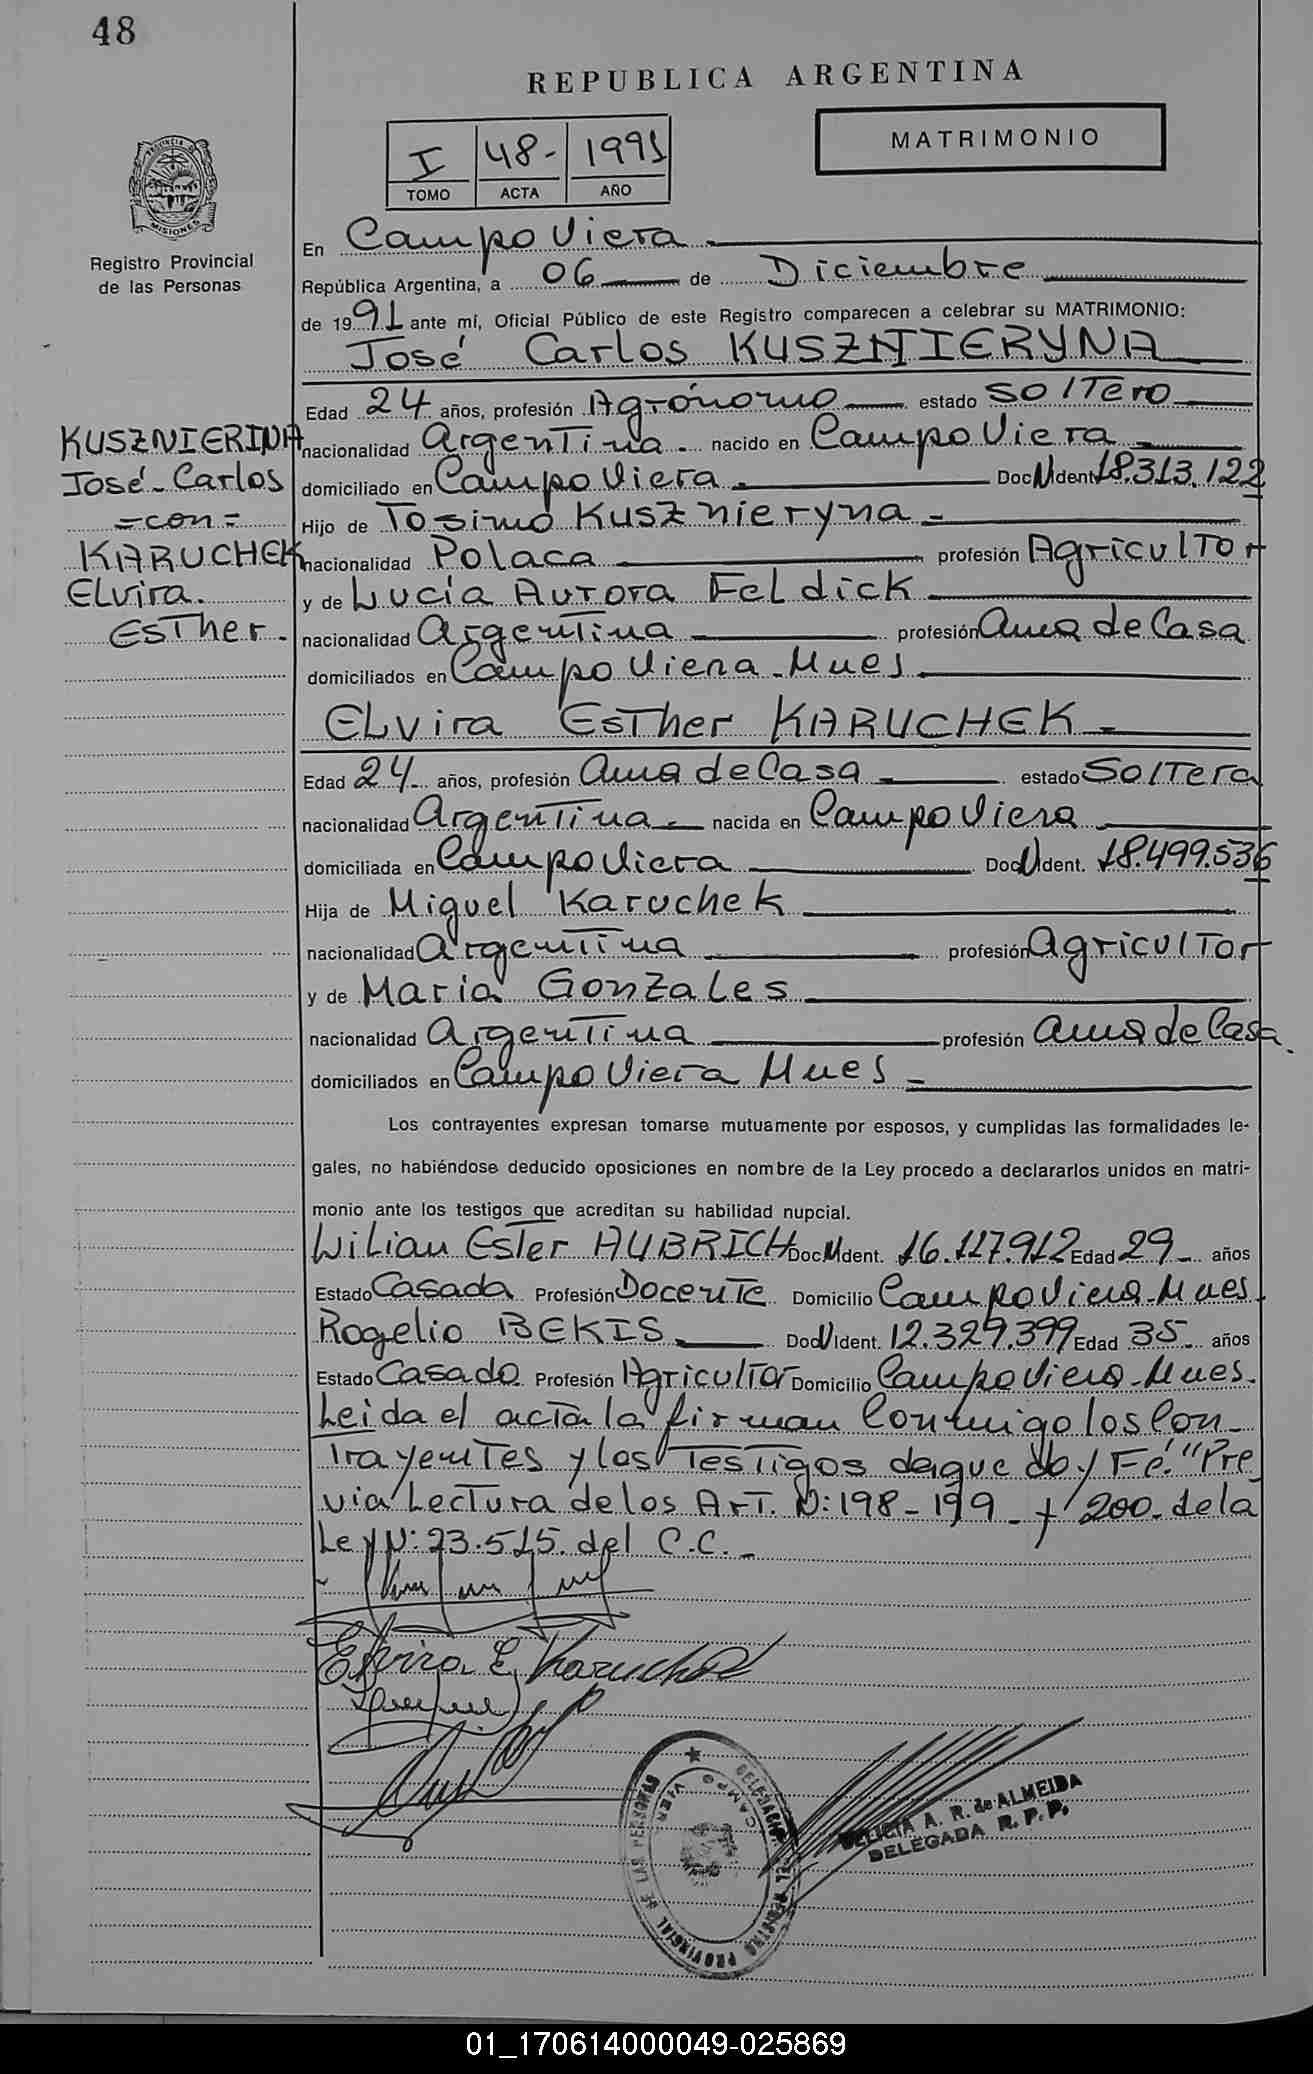 48
REPUBLICA ARGENTINA
MATRIMONIO
I 48- 1991
TOMO ACTA AÑO
PROVINCIA DE MISIONES
Registro Provincial
de las Personas
En Campo Viera
República Argentina, a 06 de Diciembre
de 1991 ante mí, Oficial Público de este Registro comparecen a celebrar su MATRIMONIO:
José Carlos KUSZNIERYNA
Edad 24 años, profesión Agrónomo estado Soltero
KUSZNIERINA
José-Carlos
=con=
KARUCHEK
Elvira
Esther.
nacionalidad Argentina nacido en Campo Viera
domiciliado en Campo Viera Doc N Ident 18.313.122
Hijo de Tosimo Kusznieryna
nacionalidad Polaca profesión Agricultor
y de Lucía Aurora Feldick
nacionalidad Argentina profesión Ama de Casa
domiciliados en Campo Viera Mnes
ELvira Esther KARUCHEK
Edad 24 años, profesión Ama de Casa estado Soltera
nacionalidad Argentina nacida en Campo Viera
domiciliada en Campo Viera Doc N Ident. 18.499.536
Hija de Miguel Karuchek
nacionalidad Argentina profesión Agricultor
y de Maria Gonzales
nacionalidad Argentina profesión Ama de Casa.
domiciliados en Campo Viera Mnes
Los contrayentes expresan tomarse mutuamente por esposos, y cumplidas las formalidades le-
gales, no habiéndose deducido oposiciones en nombre de la Ley procedo a declararlos unidos en matri-
monio ante los testigos que acreditan su habilidad nupcial.
Lilian Ester AUBRICH Doc N Ident. 16.117.912 Edad 29 años
Estado Casada Profesión Docente Domicilio Campo Viera-Mnes
Rogelio BEKIS Doc N Ident. 12.329.399 Edad 35 años
Estado Casado Profesión Agricultor Domicilio Campo Viera-Mnes.
Leida el acta la firman Conmigo los Con-
Trayentes y los Testigos de que doy Fé. "Pre
via Lectura de los Art. N: 198-199 y 200. de la
Ley N: 23.515. del C.C.
Elvira E Karuchek
DELEGACION DEL REGISTRO PROVINCIAL DE LAS PERSONAS
CAMPO VIERA
FELICIA A. R. de ALMEIDA
DELEGADA R. P. P.
01_170614000049-025869